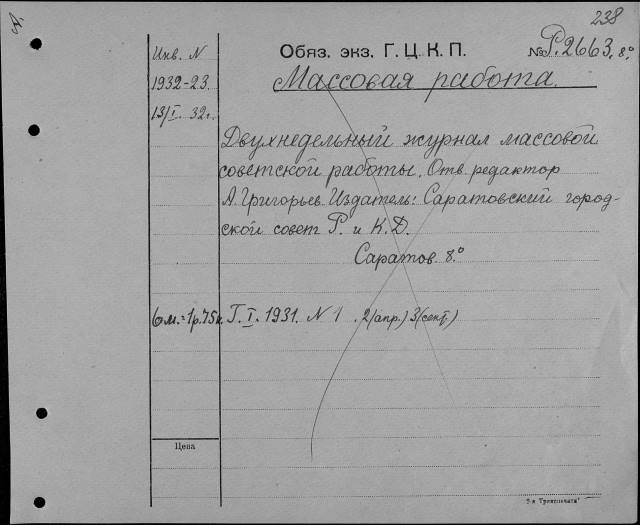 238
Инв. N
Обяз. экз. Г. Ц. К. П.
№ Р. 2663. 8.°
1932-23.
Массовая работа.
13/I. 32 г.
Двухнедельный журнал массовой
советской работы. Отв. редактор
А. Григорьев. Издатель: Саратовский город-
ской совет Р. и К. Д.
Саратов. 8.°
6 м. = 1 р. 75 к. Г. I. 1931. N 1. 2 (апр.) 3 (сент.)
Цена